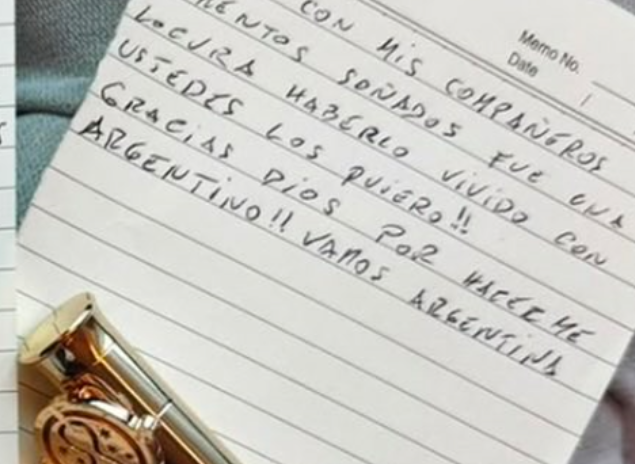 Memo No.
Date /
CON MIS COMPAÑEROS
MENTOS SOÑADOS FUE UNA
LOCURA HABERLO VIVIDO CON
USTEDES LOS QUIERO!!
GRACIAS DIOS POR HACERME
ARGENTINO!! VAMOS ARGENTINA